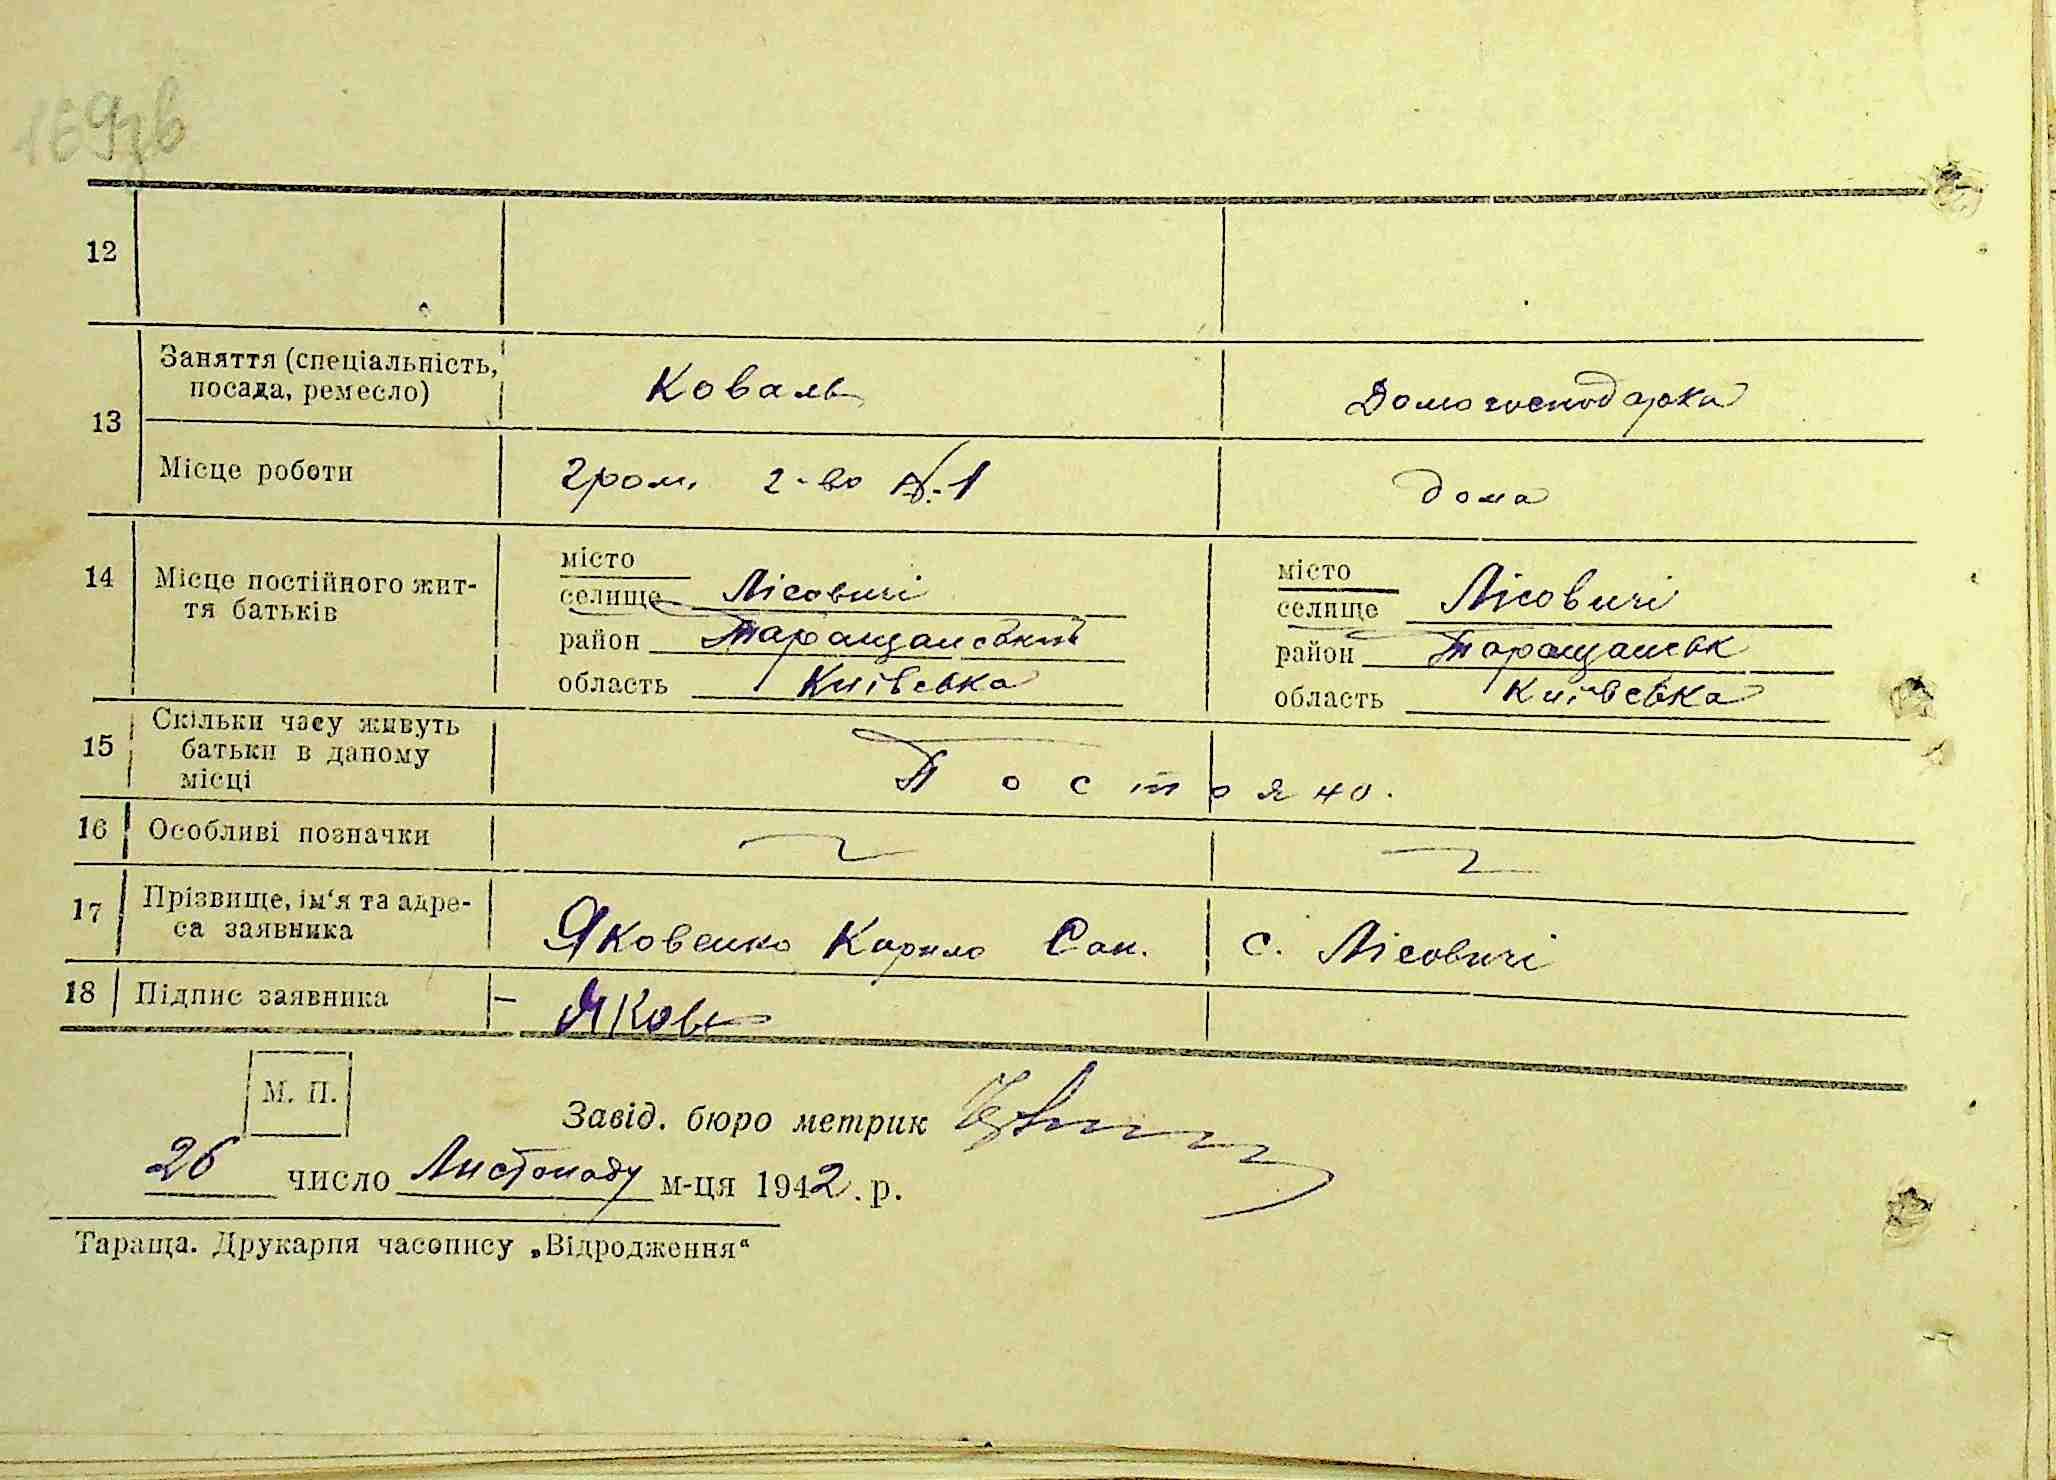 169зв
12
13 Заняття (спеціальність, посада, ремесло) Коваль Домогосподарка
Місце роботи гром. г-во №-1 дома
14 Місце постійного жит-
тя батьків
місто
селище Лісовичі
район Таращанський
область Київська
місто
селище Лісовичі
район Таращанськ
область Київська
15 Скільки часу живуть
батьки в даному
місці
Постояно.
16 Особливі позначки
17 Прізвище, ім'я та адре-
са заявника
Яковенко Кирило Сам. с. Лісовичі
18 Підпис заявника – Якове
М. П.
Завід. бюро метрик
26 число Листопаду м-ця 1942.р.
Тараща. Друкарня часопису „Відродження“